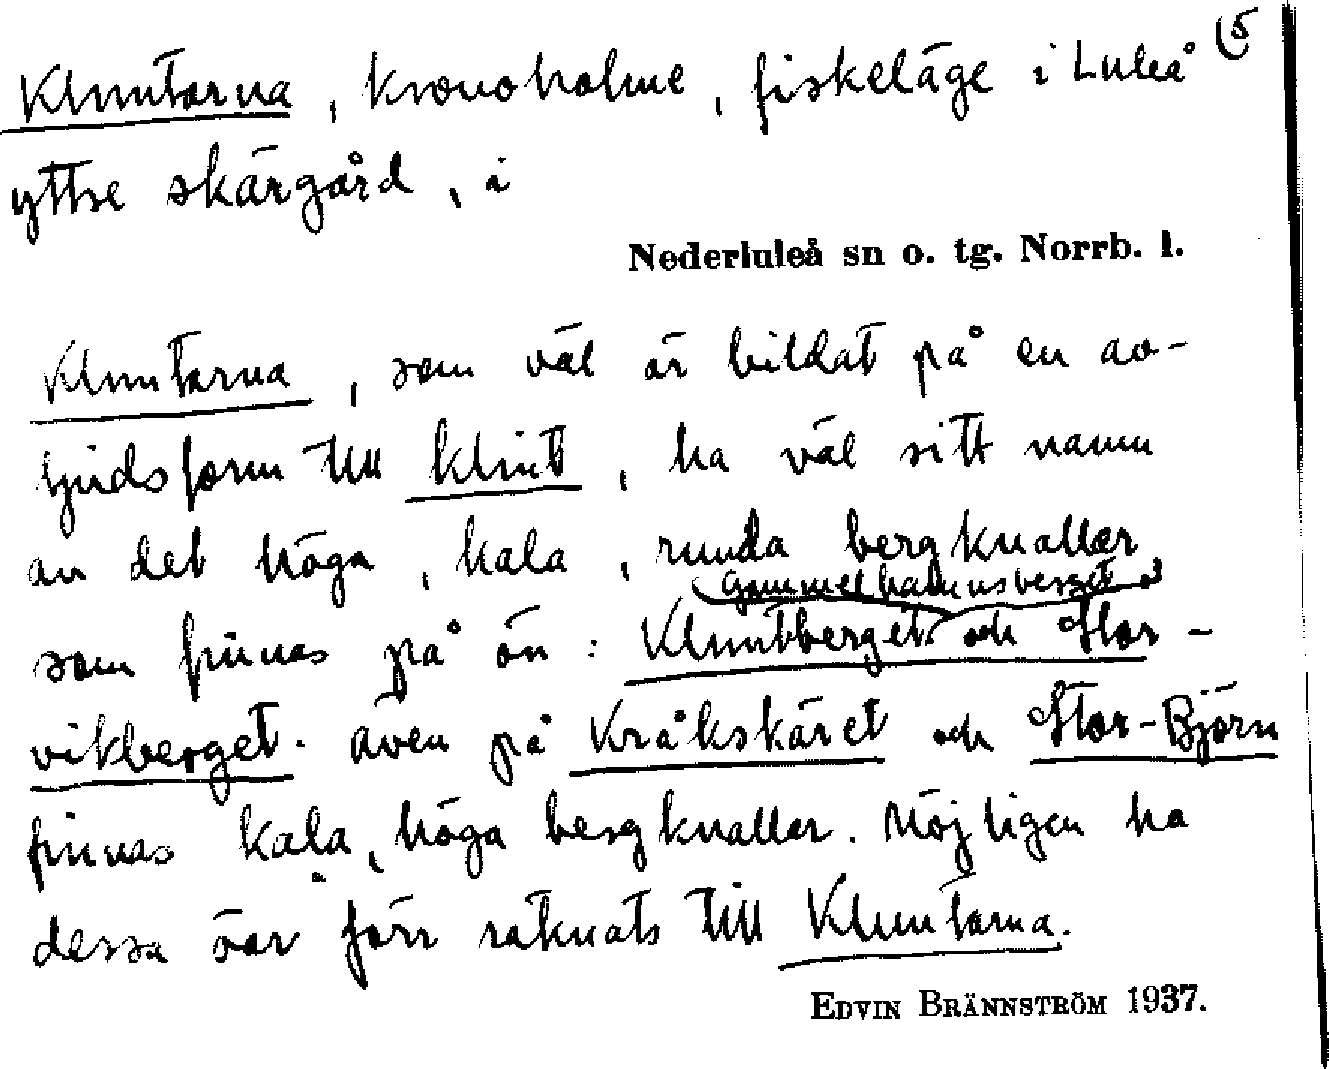 5
Kluntarna, kronoholme, fiskeläge i Luleå
yttre skärgård, i
Nederluleå sn o. tg. Norrb. l.
Kluntarna, som väl är bildat på en av-
ljudsform till klint, ha väl sitt namn
av det höga, kala, runda bergknallar
Gammelhamnsberget
som finnas på ön: Kluntberget och Stor-
vikberget. även på Kråkskäret och Stor-Björn
finnas kala, höga bergknallar. Möjligen ha
dessa öar förr räknats till Kluntarna.
EDVIN BRÄNNSTRÖM 1937.